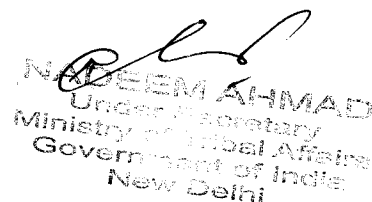 NADEEM AHMAD
Under Secretary
Ministry of Tribal Affairs
Government of India
New Delhi